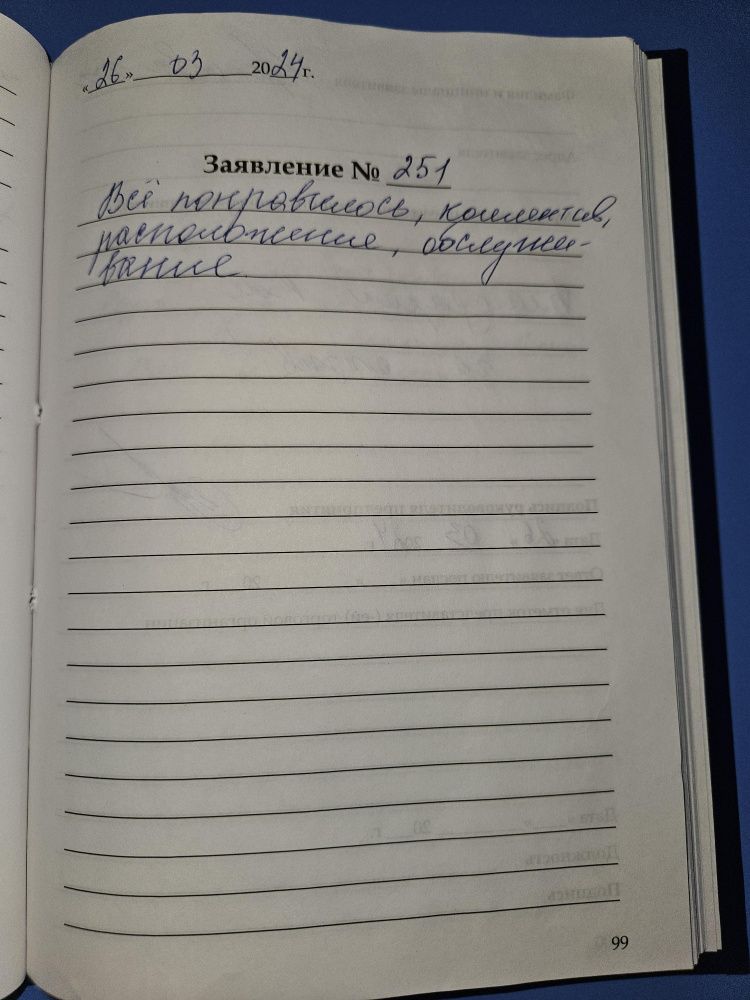 «26» 03 2024г.
Заявление № 251
Всё понравилось, коллектив,
расположение, обслужи-
вание.
99